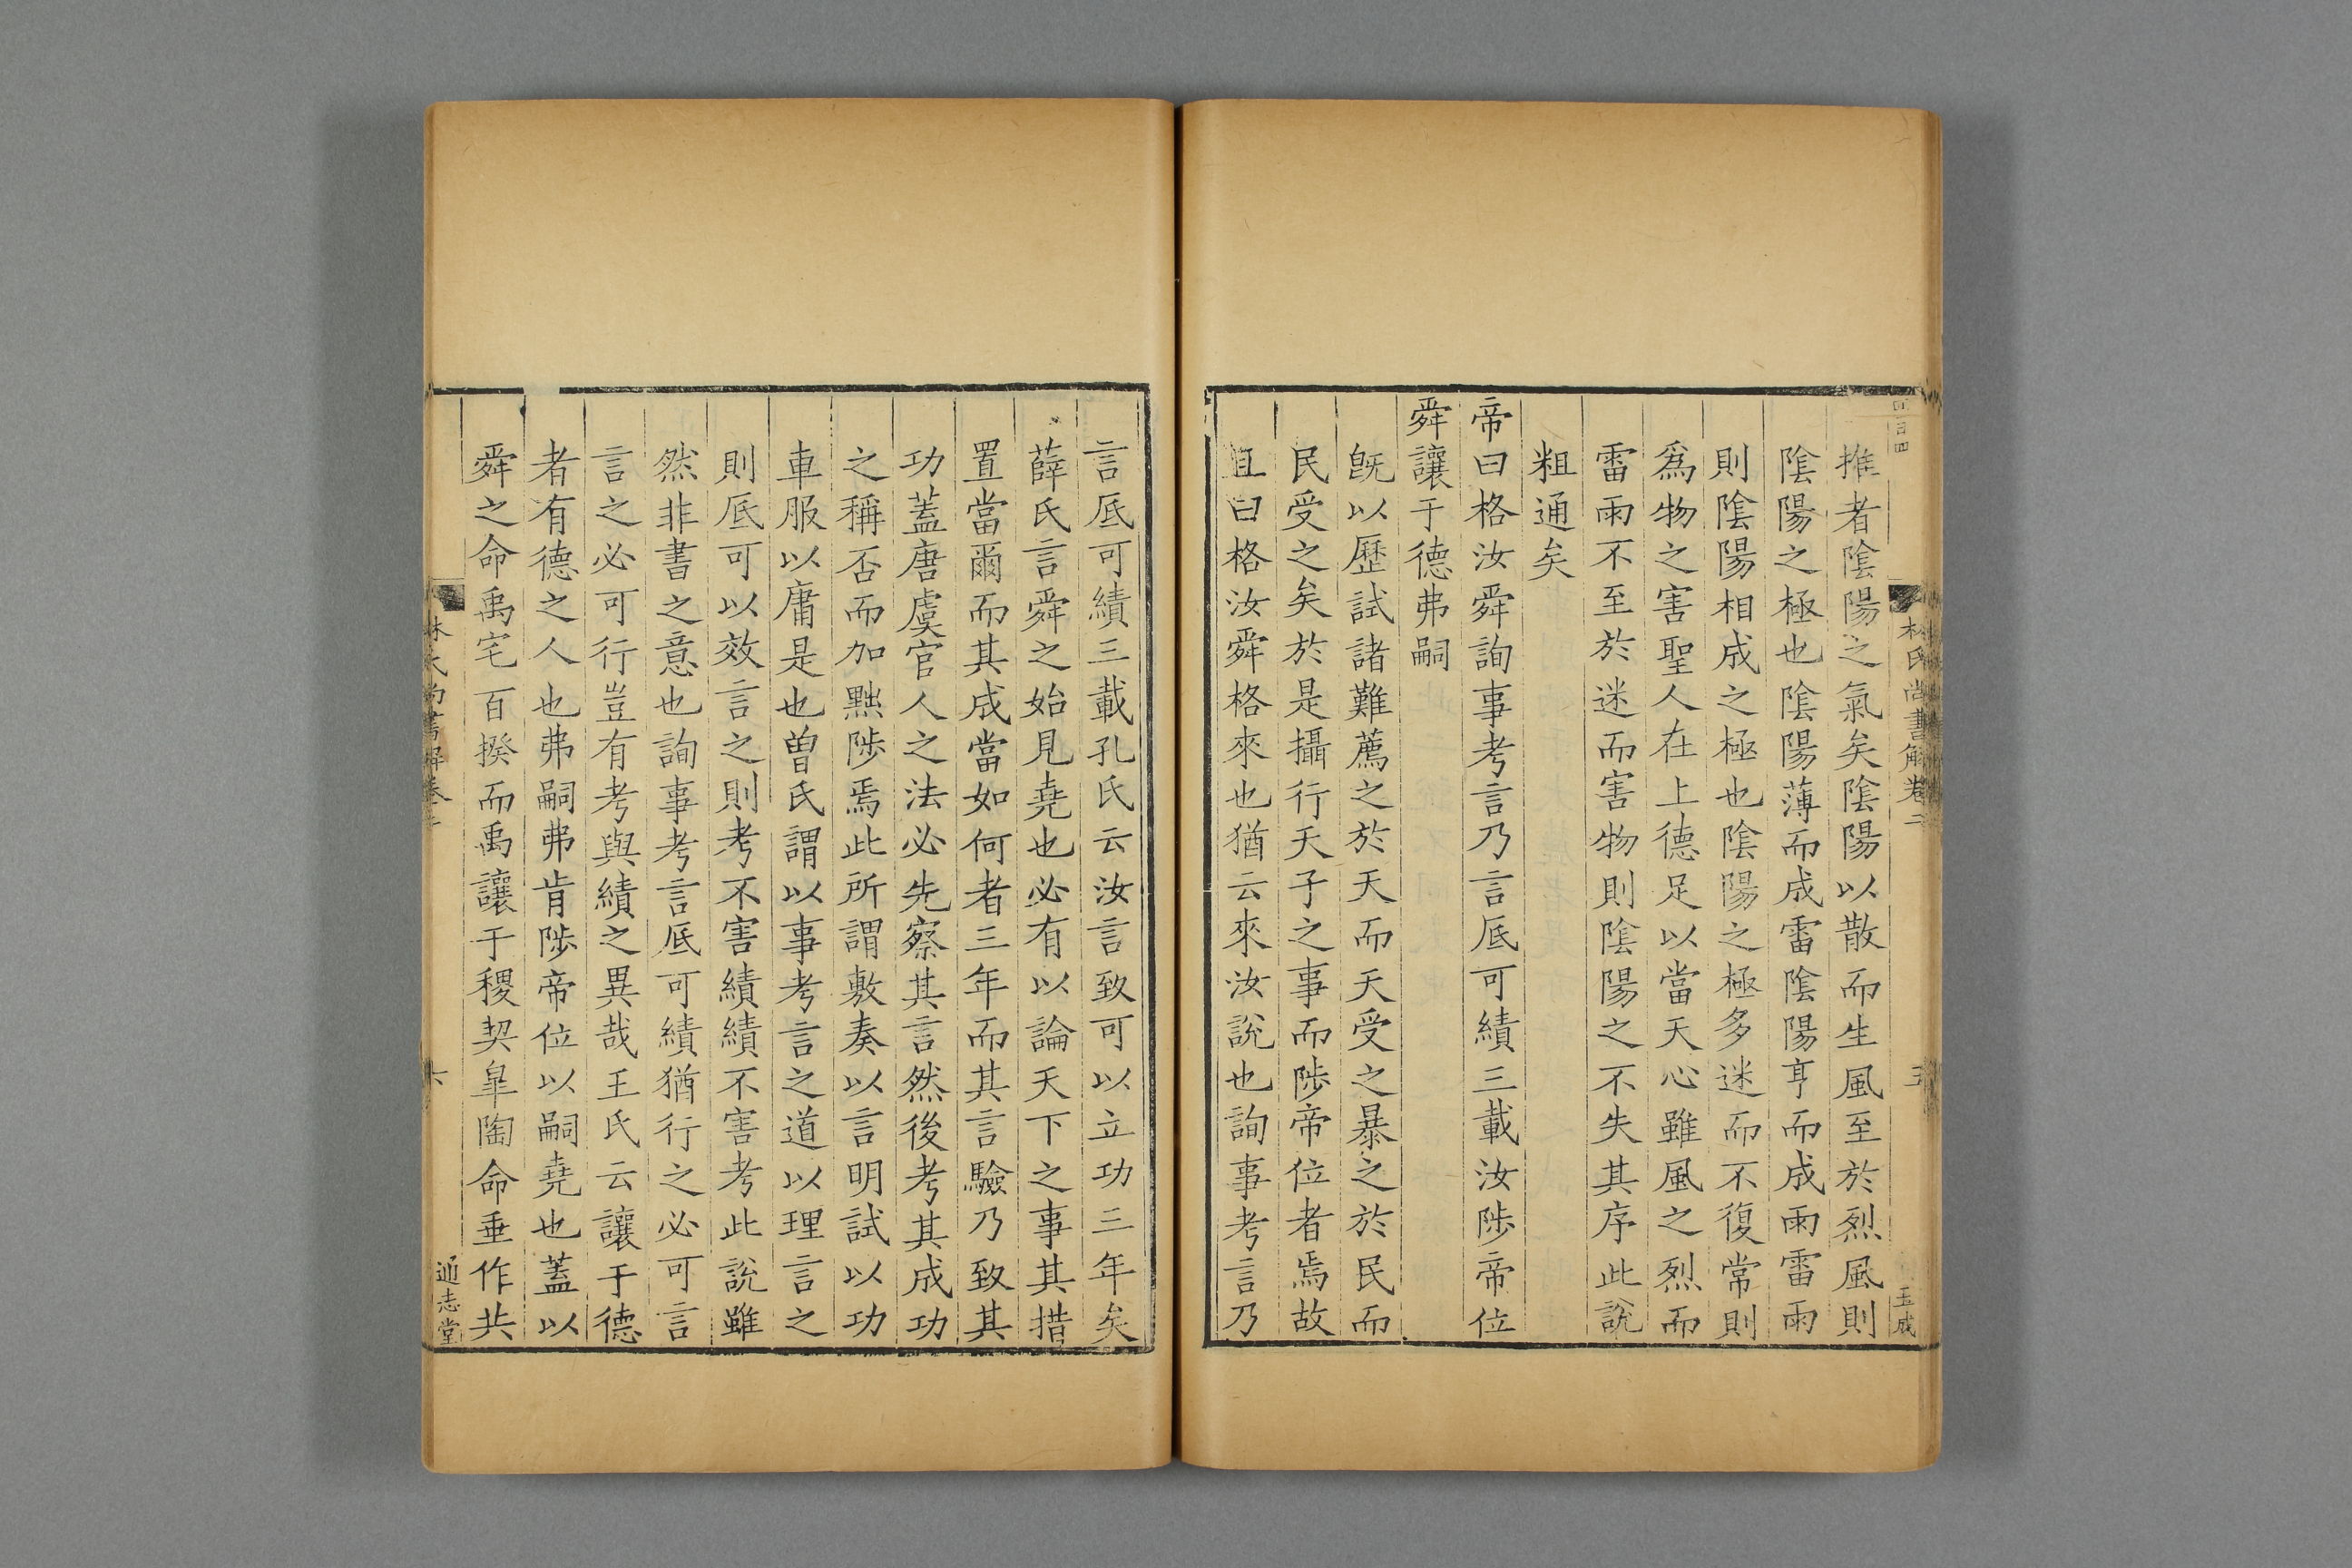 林氏尚書解卷二
五
玉成
推者陰陽之氣矣陰陽以散而生風至於烈風則
陰陽之極也陰陽薄而成雷陰陽亨而成雨雷雨
則陰陽相成之極也陰陽之極多迷而不復常則
為物之害聖人在上德足以當天心雖風之烈而
雷雨不至於迷而害物則陰陽之不失其序此說
粗通矣
帝曰格汝舜詢事考言乃言厎可績三載汝陟帝位
舜讓于德弗嗣
旣以歷試諸難薦之於天而天受之暴之於民而
民受之矣於是攝行天子之事而陟帝位者焉故
且曰格汝舜格來也猶云來汝說也詢事考言乃
言厎可績三載孔氏云汝言致可以立功三年矣
薛氏言舜之始見堯也必有以論天下之事其措
置當爾而其成當如何者三年而其言驗乃致其
功蓋唐虞官人之法必先察其言然後考其成功
之稱否而加黜陟焉此所謂敷奏以言明試以功
車服以庸是也曾氏謂以事考言之道以理言之
則厎可以效言之則考不害績績不害考此說雖
然非書之意也詢事考言厎可績猶行之必可言
言之必可行豈有考與績之異哉王氏云讓于德
者有德之人也弗嗣弗肯陟帝位以嗣堯也蓋以
舜之命禹宅百揆而禹讓于稷契皐陶命垂作共
林氏尚書解卷二
六
通志堂